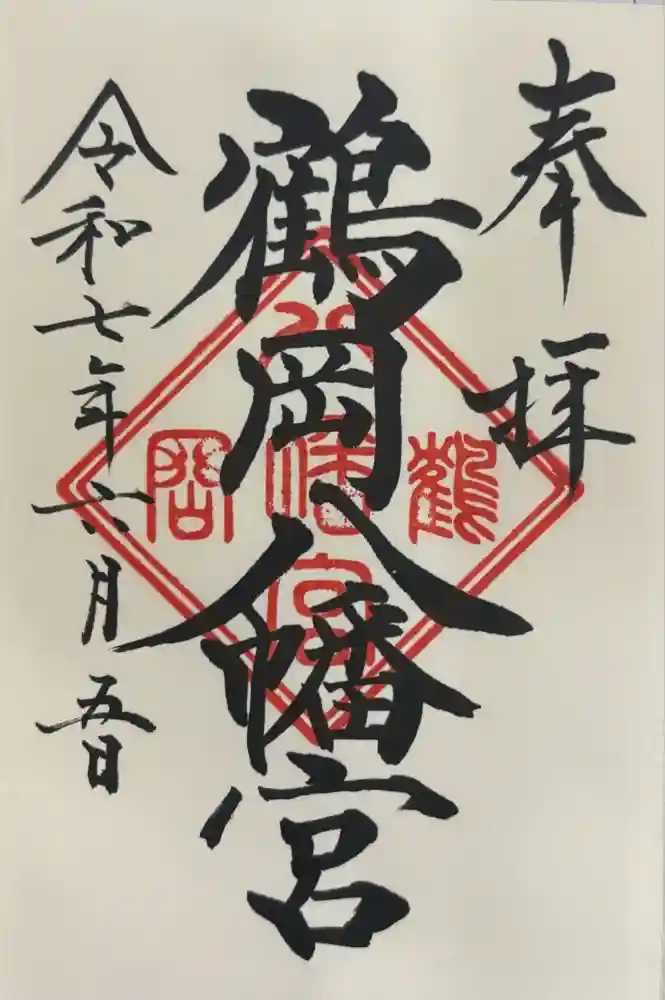 奉拝
鶴岡八幡宮
令和七年六月五日
鶴岡八幡宮